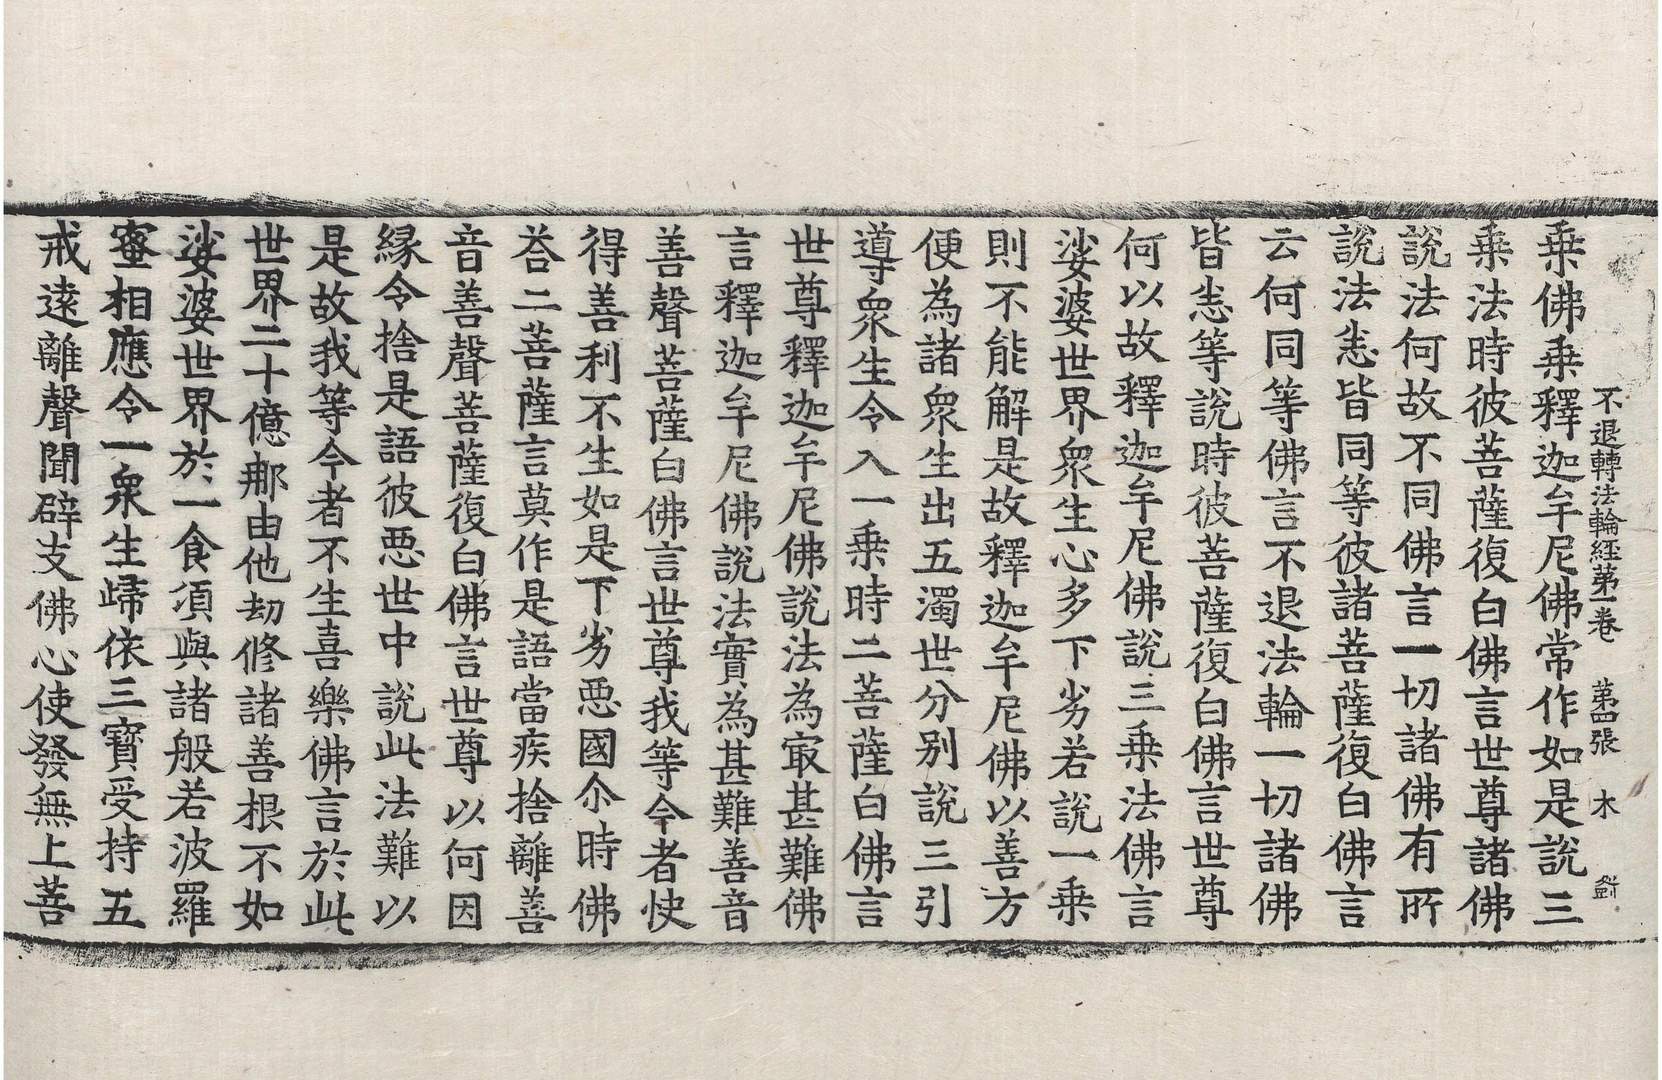 不退轉法輪經第一卷　第四張　木　劉
乗佛乗釋迦牟尼佛常作如是說三
乗法時彼菩薩復白佛言世尊諸佛
說法何故不同佛言一切諸佛有所
說法悉皆同等彼諸菩薩復白佛言
云何同等佛言不退法輪一切諸佛
皆悉等說時彼菩薩復白佛言世尊
何以故釋迦牟尼佛說三乗法佛言
娑婆世界衆生心多下劣若說一乗
則不能解是故釋迦牟尼佛以善方
便為諸衆生出五濁世分別說三引
導衆生令入一乗時二菩薩白佛言
世尊釋迦牟尼佛說法為㝡甚難佛
言釋迦牟尼佛說法實為甚難善音
善聲菩薩白佛言世尊我等今者快
得善利不生如是下劣惡國尒時佛
荅二菩薩言莫作是語當疾捨離善
音善聲菩薩復白佛言世尊以何因
縁令捨是語彼惡世中說此法難以
是故我等今者不生喜樂佛言於此
世界二十億那由他劫修諸善根不如
娑婆世界於一食湏與諸般若波羅
蜜相應令一衆生歸依三寳受持五
戒遠離聲聞辟支佛心使發無上菩